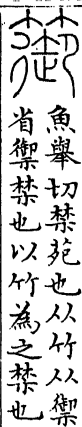 魚舉切禁苑也从竹从禦
省禦禁也以竹為之禁也